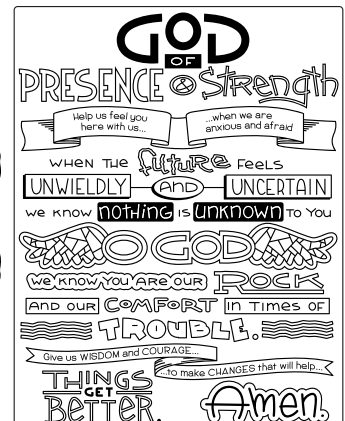 GOD
OF
PRESENCE & STRENGTH
Help us feel you
here with us...
...when we are
anxious and afraid
WHEN THE future FEELS
UNWIELDLY AND UNCERTAIN
we know nothing is unknown to you
O GOD
we know you are our ROCK
AND OUR COMFORT IN TIMES OF
TROUBLE.
Give us WISDOM and COURAGE...
...to make CHANGES that will help...
THINGS
GET
BETTER.
Amen.